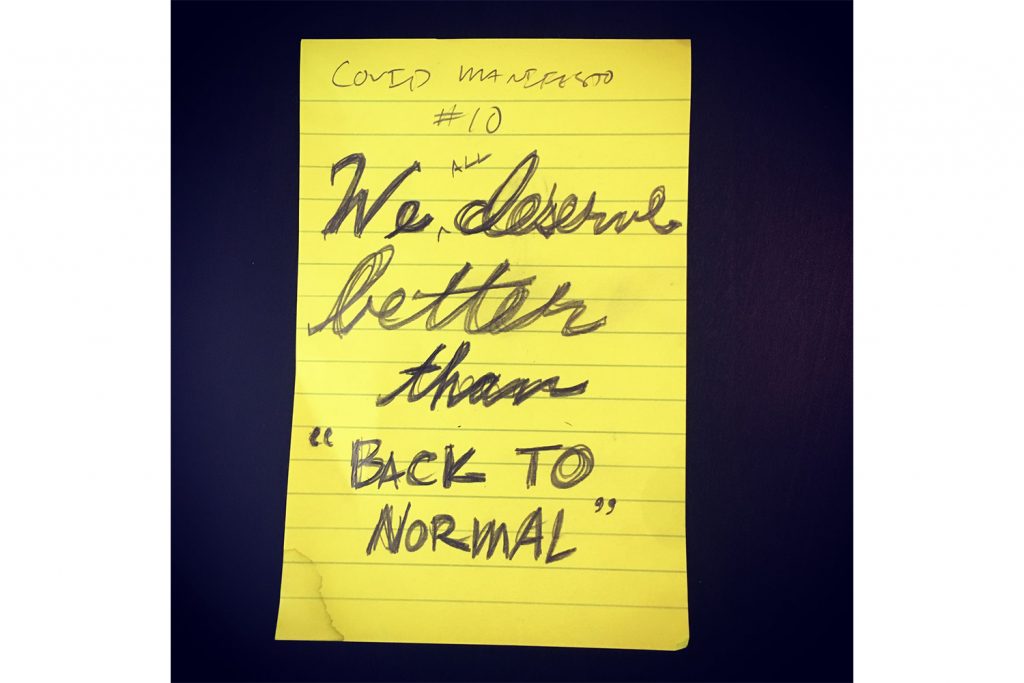 COVID MANIFESTO
#10
We ALL deserve
better
than
“BACK TO
NORMAL”